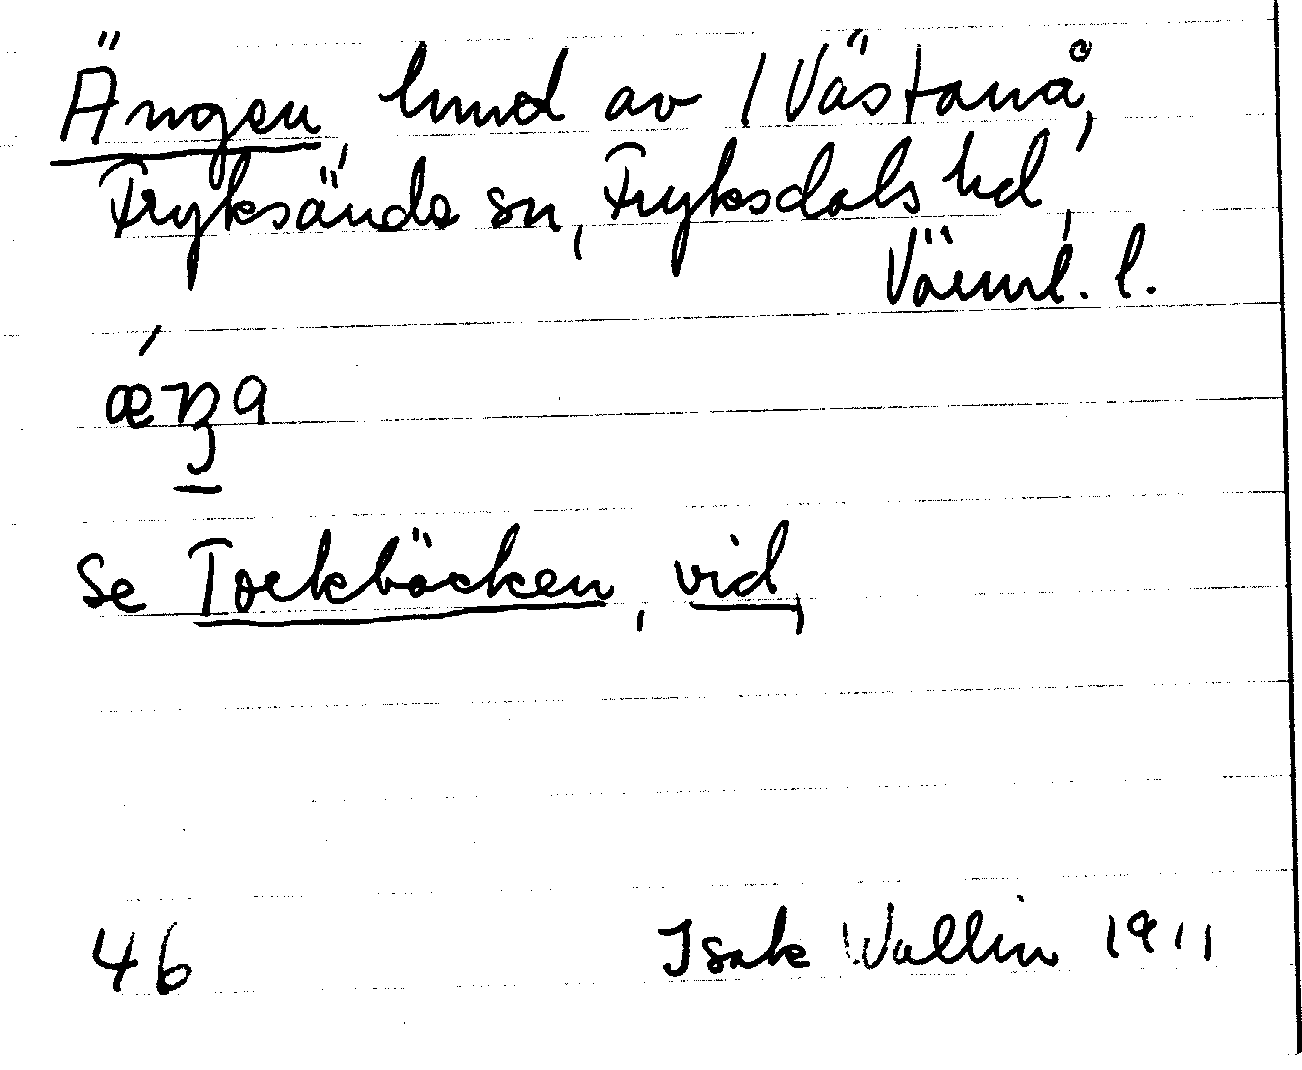 Ängen, hmd av 1 Västanå,
Fryksände sn, Fryksdals hd,
Värml. l.
Se Torkbäcken, vid,
46 Isak Wallin 1911